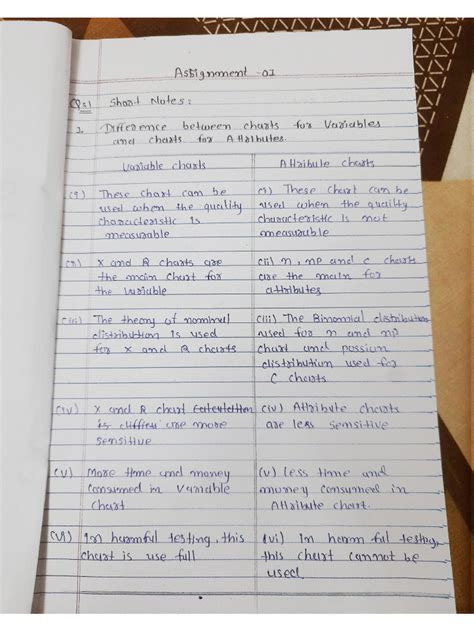 Assignment -01
Qs1 Short Notes:
1. Difference between charts for Variables
and charts for Attributes.
Variable charts
(i) These chart can be
used when the quality
characteristic is
measurable
(ii) X and R charts are
the main chart for
the variable
(iii) The theory of nominal
distribution is used
for X and R charts
(iv) X and R chart calculation
is are more
sensitive
(v) More time and money
consumed in variable
chart
(vi) In harmful testing, this
chart is use full
Attribute charts
(i) These chart can be
used when the quality
characteristic is not
measurable
(ii) n, np and c charts
are the main for
attributes
(iii) The Binomial distribution
used for n and np
chart and possion
distribution used for
C charts
(iv) Attribute charts
are less sensitive
(v) less time and
money consumed in
Attribute chart.
(vi) In harm ful testing,
this chart cannot be
used.